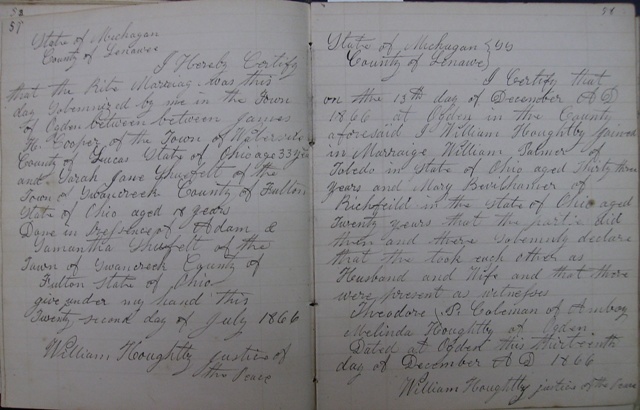 State of Michagan
County of Lenawee
I Hereby Certify
that the Rite Marriag was this
day Solemnized by me in the Town
of Ogden between between James
H. Cooper of the Town of
County of Lucas State of Ohio age 33 years
and Sarah Jane Shufelt of the
Town of Swancreek County of Fulton
State of Ohio aged 18 years
Done in Pressence of Adam &
Samantha Shufelt of the
Town of Swancreek County of
Fulton State of Ohio
give under my hand this
Twenty second day of July 1866
William Houghtby Justice of
the Peace
State of Michagan } SS
County of Lenawe }
I Certify that
on the 13th day of December A D
1866 at Ogden in the County
aforesaid I William Houghtby joined
in Marraige William Palmer of
Toledo in State of Ohio aged Thirty three
years and Mary of
Richfeild in the State of Ohio aged
Twenty years that the partie did
then and there Solemnly declare
that the took each other as
Husband and Wife and that there
were present as witnesses
Theodore S. Coleman of Amboy
Melinda Houghtby of Ogden
Dated at Ogden this thirteenth
day of December A D 1866
William Houghtby justice of the Peace